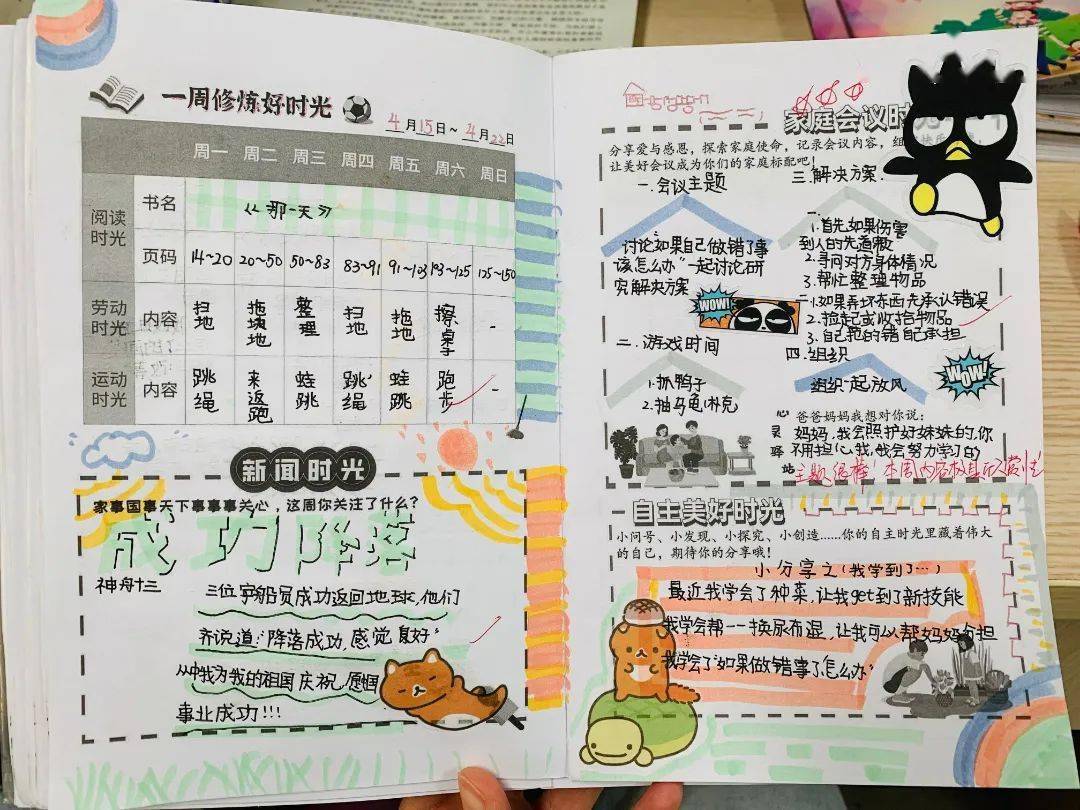 一周修炼好时光
4月15日~4月22日
周一 周二 周三 周四 周五 周六 周日
阅读时光 书名 《那一天》
页码 14~20 20~50 50~83 83~91 91~103 103~125 125~150
劳动时光 内容 扫地 拖地 整理 扫地 拖地 擦桌子 -
运动时光 内容 跳绳 来返跑 蛙跳 跳绳 蛙跳 跑步 -
新闻时光
家事国事天下事事事关心，这周你关注了什么？
成功降落
神舟十三
三位宇船员成功返回地球，他们
齐说道："降落成功，感觉良好"
从中我为我的祖国庆祝，愿祖国
事业成功!!!
家庭会议时
分享爱与感恩，探索家庭使命，记录会议内容，组
让美好会议成为你们的家庭标配吧！
一.会议主题
讨论"如果自己做错了事
该怎么办"一起讨论研
究解决方案
二、游戏时间
1.抓鸭子
2.抽乌龟(扑克)
三.解决方案:
一.
1.首先如果伤害
到人的先道歉
2.寻问对方身体情况
3.帮忙整理物品
二.1.如果弄坏东西先承认错误
2.捡起或收拾物品
3.自己犯的错自己承担
四.组织
组织一起放风
WOW!
WOW!
心灵驿站
爸爸妈妈我想对你说：
妈妈，我会照护好妹妹的，你
不用担心我，我会努力学习的
主题很棒！本周内容
自主美好时光
小问号、小发现、小探究、小创造……你的自主时光里藏着伟大
的自己，期待你的分享哦！
小分享之(我学到了…)
最近我学会了种菜，让我get到了新技能
我学会帮一一换尿布湿，让我可以帮妈妈分担
我学会了"如果做错事了怎么办"